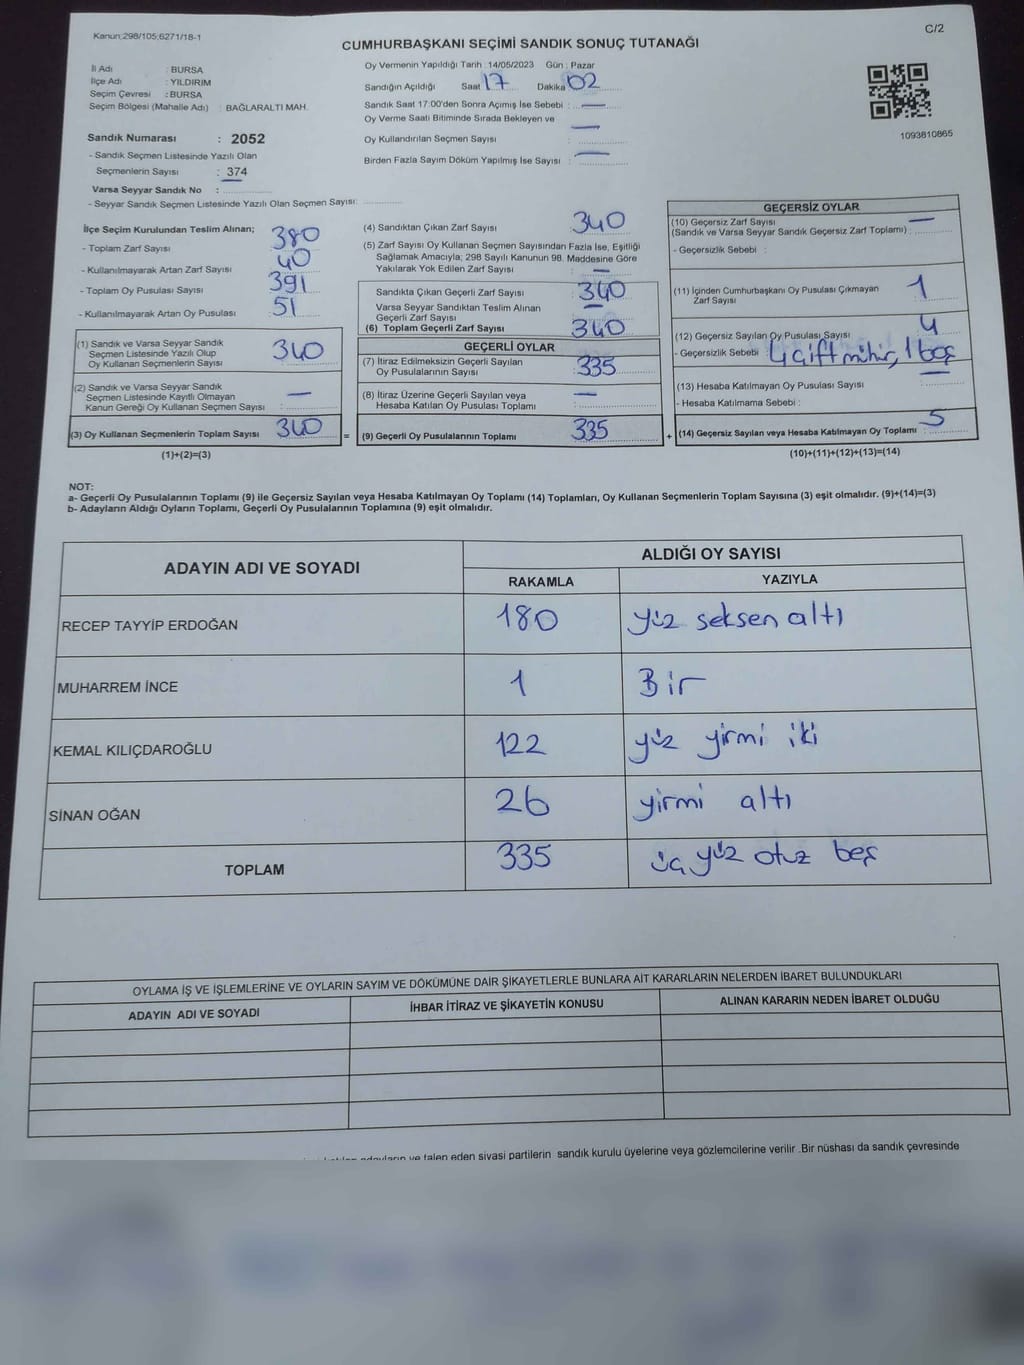 Kanun:298/105;6271/18-1
C/2
CUMHURBAŞKANI SEÇİMİ SANDIK SONUÇ TUTANAĞI
İl Adı : BURSA
İlçe Adı : YILDIRIM
Seçim Çevresi : BURSA
Seçim Bölgesi (Mahalle Adı) : BAĞLARALTI MAH.
Sandık Numarası : 2052
- Sandık Seçmen Listesinde Yazılı Olan
Seçmenlerin Sayısı : 374
Varsa Seyyar Sandık No :
- Seyyar Sandık Seçmen Listesinde Yazılı Olan Seçmen Sayısı:
Oy Vermenin Yapıldığı Tarih :14/05/2023 Gün : Pazar
Sandığın Açıldığı Saat 17 Dakika 02
Sandık Saat 17:00'den Sonra Açımış İse Sebebi : —
Oy Verme Saati Bitiminde Sırada Bekleyen ve
Oy Kullandırılan Seçmen Sayısı : —
Birden Fazla Sayım Döküm Yapılmış İse Sayısı : —
1093810865
İlçe Seçim Kurulundan Teslim Alınan;
- Toplam Zarf Sayısı 380
- Kullanılmayarak Artan Zarf Sayısı 40
- Toplam Oy Pusulası Sayısı 391
- Kullanılmayarak Artan Oy Pusulası 51
(1) Sandık ve Varsa Seyyar Sandık
Seçmen Listesinde Yazılı Olup
Oy Kullanan Seçmenlerin Sayısı 340
(2) Sandık ve Varsa Seyyar Sandık
Seçmen Listesinde Kayıtlı Olmayan
Kanun Gereği Oy Kullanan Seçmen Sayısı —
(3) Oy Kullanan Seçmenlerin Toplam Sayısı 340
(1)+(2)=(3)
(4) Sandıktan Çıkan Zarf Sayısı 340
(5) Zarf Sayısı Oy Kullanan Seçmen Sayısından Fazla İse, Eşitliği
Sağlamak Amacıyla; 298 Sayılı Kanunun 98. Maddesine Göre
Yakılarak Yok Edilen Zarf Sayısı —
Sandıkta Çıkan Geçerli Zarf Sayısı 340
Varsa Seyyar Sandıktan Teslim Alınan
Geçerli Zarf Sayısı —
(6) Toplam Geçerli Zarf Sayısı 340
GEÇERLİ OYLAR
(7) İtiraz Edilmeksizin Geçerli Sayılan
Oy Pusulalarının Sayısı 335
(8) İtiraz Üzerine Geçerli Sayılan veya
Hesaba Katılan Oy Pusulası Toplamı —
= (9) Geçerli Oy Pusulalarının Toplamı 335
GEÇERSİZ OYLAR
(10) Geçersiz Zarf Sayısı —
(Sandık ve Varsa Seyyar Sandık Geçersiz Zarf Toplamı) :
- Geçersizlik Sebebi :
(11) İçinden Cumhurbaşkanı Oy Pusulası Çıkmayan
Zarf Sayısı 1
(12) Geçersiz Sayılan Oy Pusulası Sayısı 4
- Geçersizlik Sebebi : 4 çift mühür, 1 boş
(13) Hesaba Katılmayan Oy Pusulası Sayısı —
- Hesaba Katılmama Sebebi :
+ (14) Geçersiz Sayılan veya Hesaba Katılmayan Oy Toplamı 5
(10)+(11)+(12)+(13)=(14)
NOT:
a- Geçerli Oy Pusulalarının Toplamı (9) ile Geçersiz Sayılan veya Hesaba Katılmayan Oy Toplamı (14) Toplamları, Oy Kullanan Seçmenlerin Toplam Sayısına (3) eşit olmalıdır. (9)+(14)=(3)
b- Adayların Aldığı Oyların Toplamı, Geçerli Oy Pusulalarının Toplamına (9) eşit olmalıdır.
ADAYIN ADI VE SOYADI
ALDIĞI OY SAYISI
RAKAMLA YAZIYLA
RECEP TAYYİP ERDOĞAN 180 yüz seksen altı
MUHARREM İNCE 1 Bir
KEMAL KILIÇDAROĞLU 122 yüz yirmi iki
SİNAN OĞAN 26 yirmi altı
TOPLAM 335 üç yüz otuz beş
OYLAMA İŞ VE İŞLEMLERİNE VE OYLARIN SAYIM VE DÖKÜMÜNE DAİR ŞİKAYETLERLE BUNLARA AİT KARARLARIN NELERDEN İBARET BULUNDUKLARI
ADAYIN ADI VE SOYADI İHBAR İTİRAZ VE ŞİKAYETİN KONUSU ALINAN KARARIN NEDEN İBARET OLDUĞU
adayların ve talep eden siyasi partilerin sandık kurulu üyelerine veya gözlemcilerine verilir .Bir nüshası da sandık çevresinde